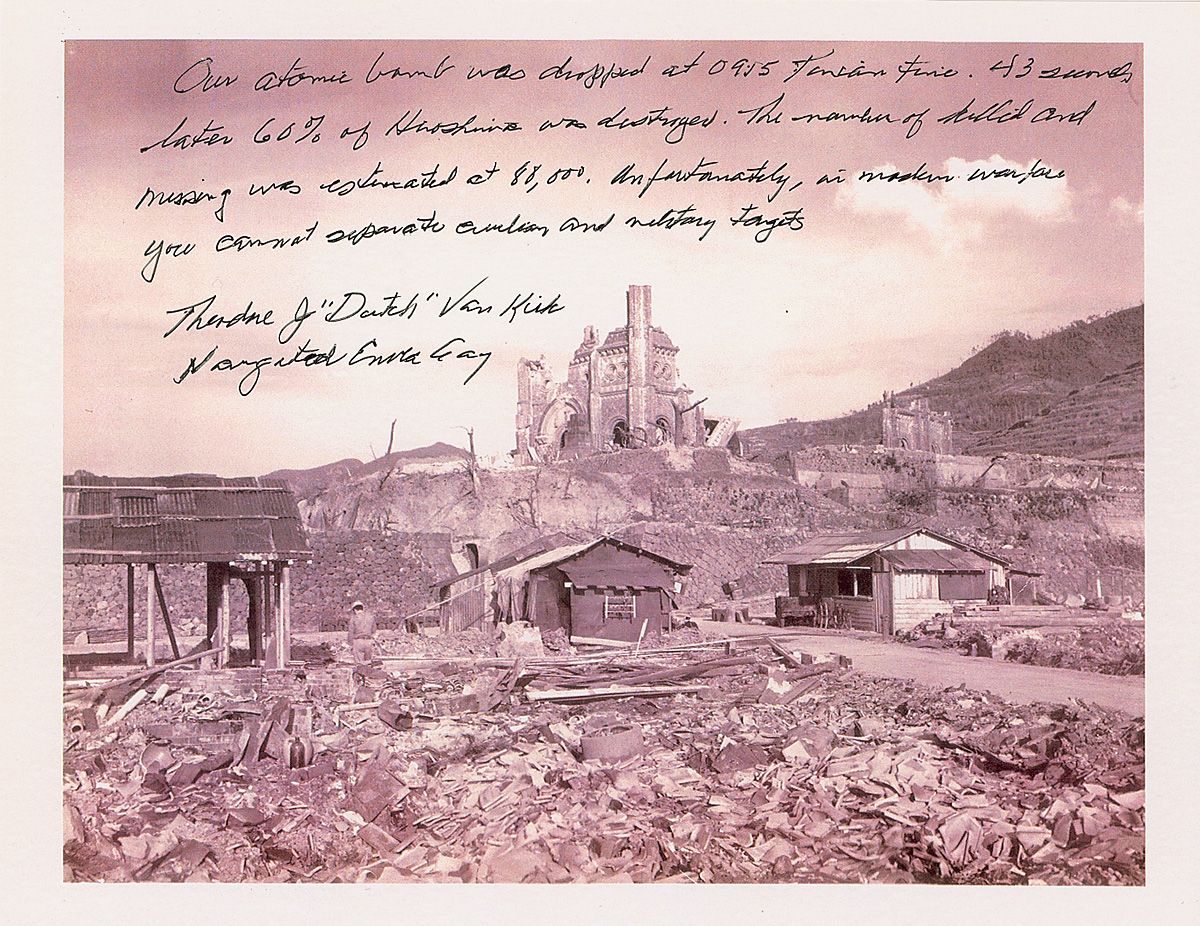 Our atomic bomb was dropped at 0915 Tinian time. 43 seconds
later 60% of Hiroshima was destroyed. The number of killed and
missing was estimated at 88,000. Unfortunately, in modern warfare
you cannot separate civilian and military targets
Theodore J "Dutch" Van Kirk
Navigated Enola Gay